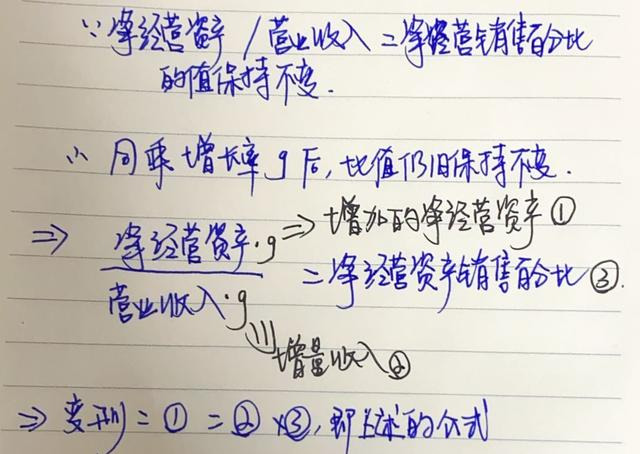 ∵净经营资产/营业收入=净经营销售百分比
的值保持不变.
∴同乘增长率g后,比值仍旧保持不变.
⇒ 净经营资产·g ⇒增加的净经营资产①
营业收入·g =净经营资产销售百分比③.
增量收入②
⇒变形=①=②×③,即上述的公式